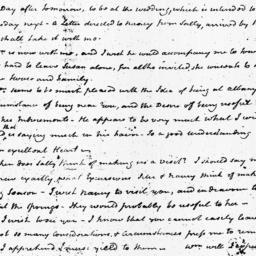 Day after tomorrow, to be at the wedding, which is intended to
day next - a Letter directed to Nancy from Sally, arrived by
shall take it with me.
is now with me, and I wish he would accompany me to
hard to leave Susan alone, for altho invited, she consents to
House and family.
seems to be much pleased with the Idea of being at albany
cumstance of being near you, and the Desire of being useful
Inducements. He appears to be very much what I wish
that is saying much in his favor. To a good understanding
excellent Heart
does Sally think of making us a visit? I should say
exactly, what Expressions She & Nancy think of making
Season - I wish Nancy to visit you, and endeavour to
the Springs. They would probably be useful to her -
I wish to see you - I know that you cannot easily leave
so many considerations & circumstances press me to
I apprehend I must yield to them - Wm. will